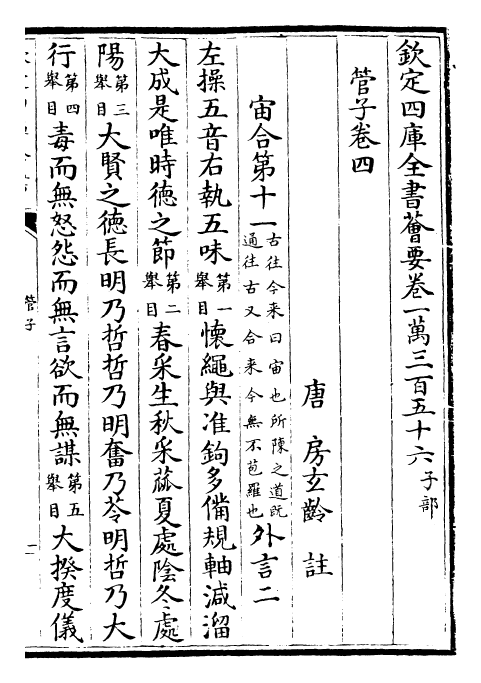 欽定四庫全書薈要卷一萬三百五十六子部
管子卷四
唐 房玄齡 註
宙合第十一古往今来曰宙也所陳之道既通往古又合来今無不苞羅也外言二
左操五音右執五味第一舉目懷繩與准鉤多備規軸減溜
大成是唯時徳之節第二舉目春采生秋采蓏夏處隂冬處
陽第三舉目大賢之徳長明乃哲哲乃明奮乃苓明哲乃大
行第四舉目毒而無怒怨而無言欲而無謀第五舉目大揆度儀
管子